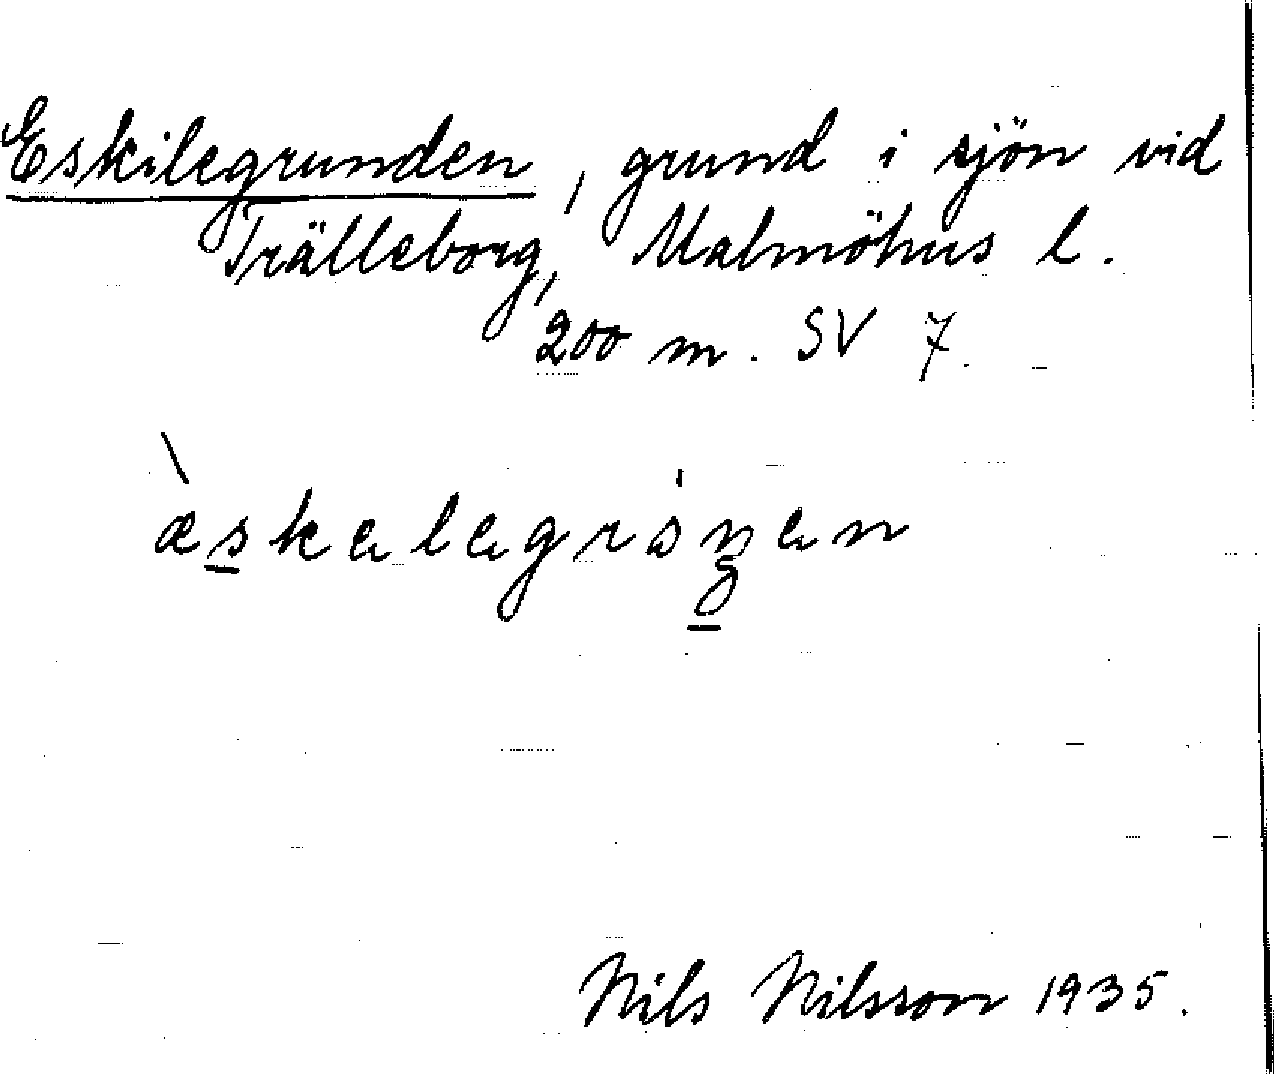 Eskilegrunden, grund i sjön vid
Trälleborg, Malmöhus l.
200 m. SV 7.
Nils Nilsson 1935.